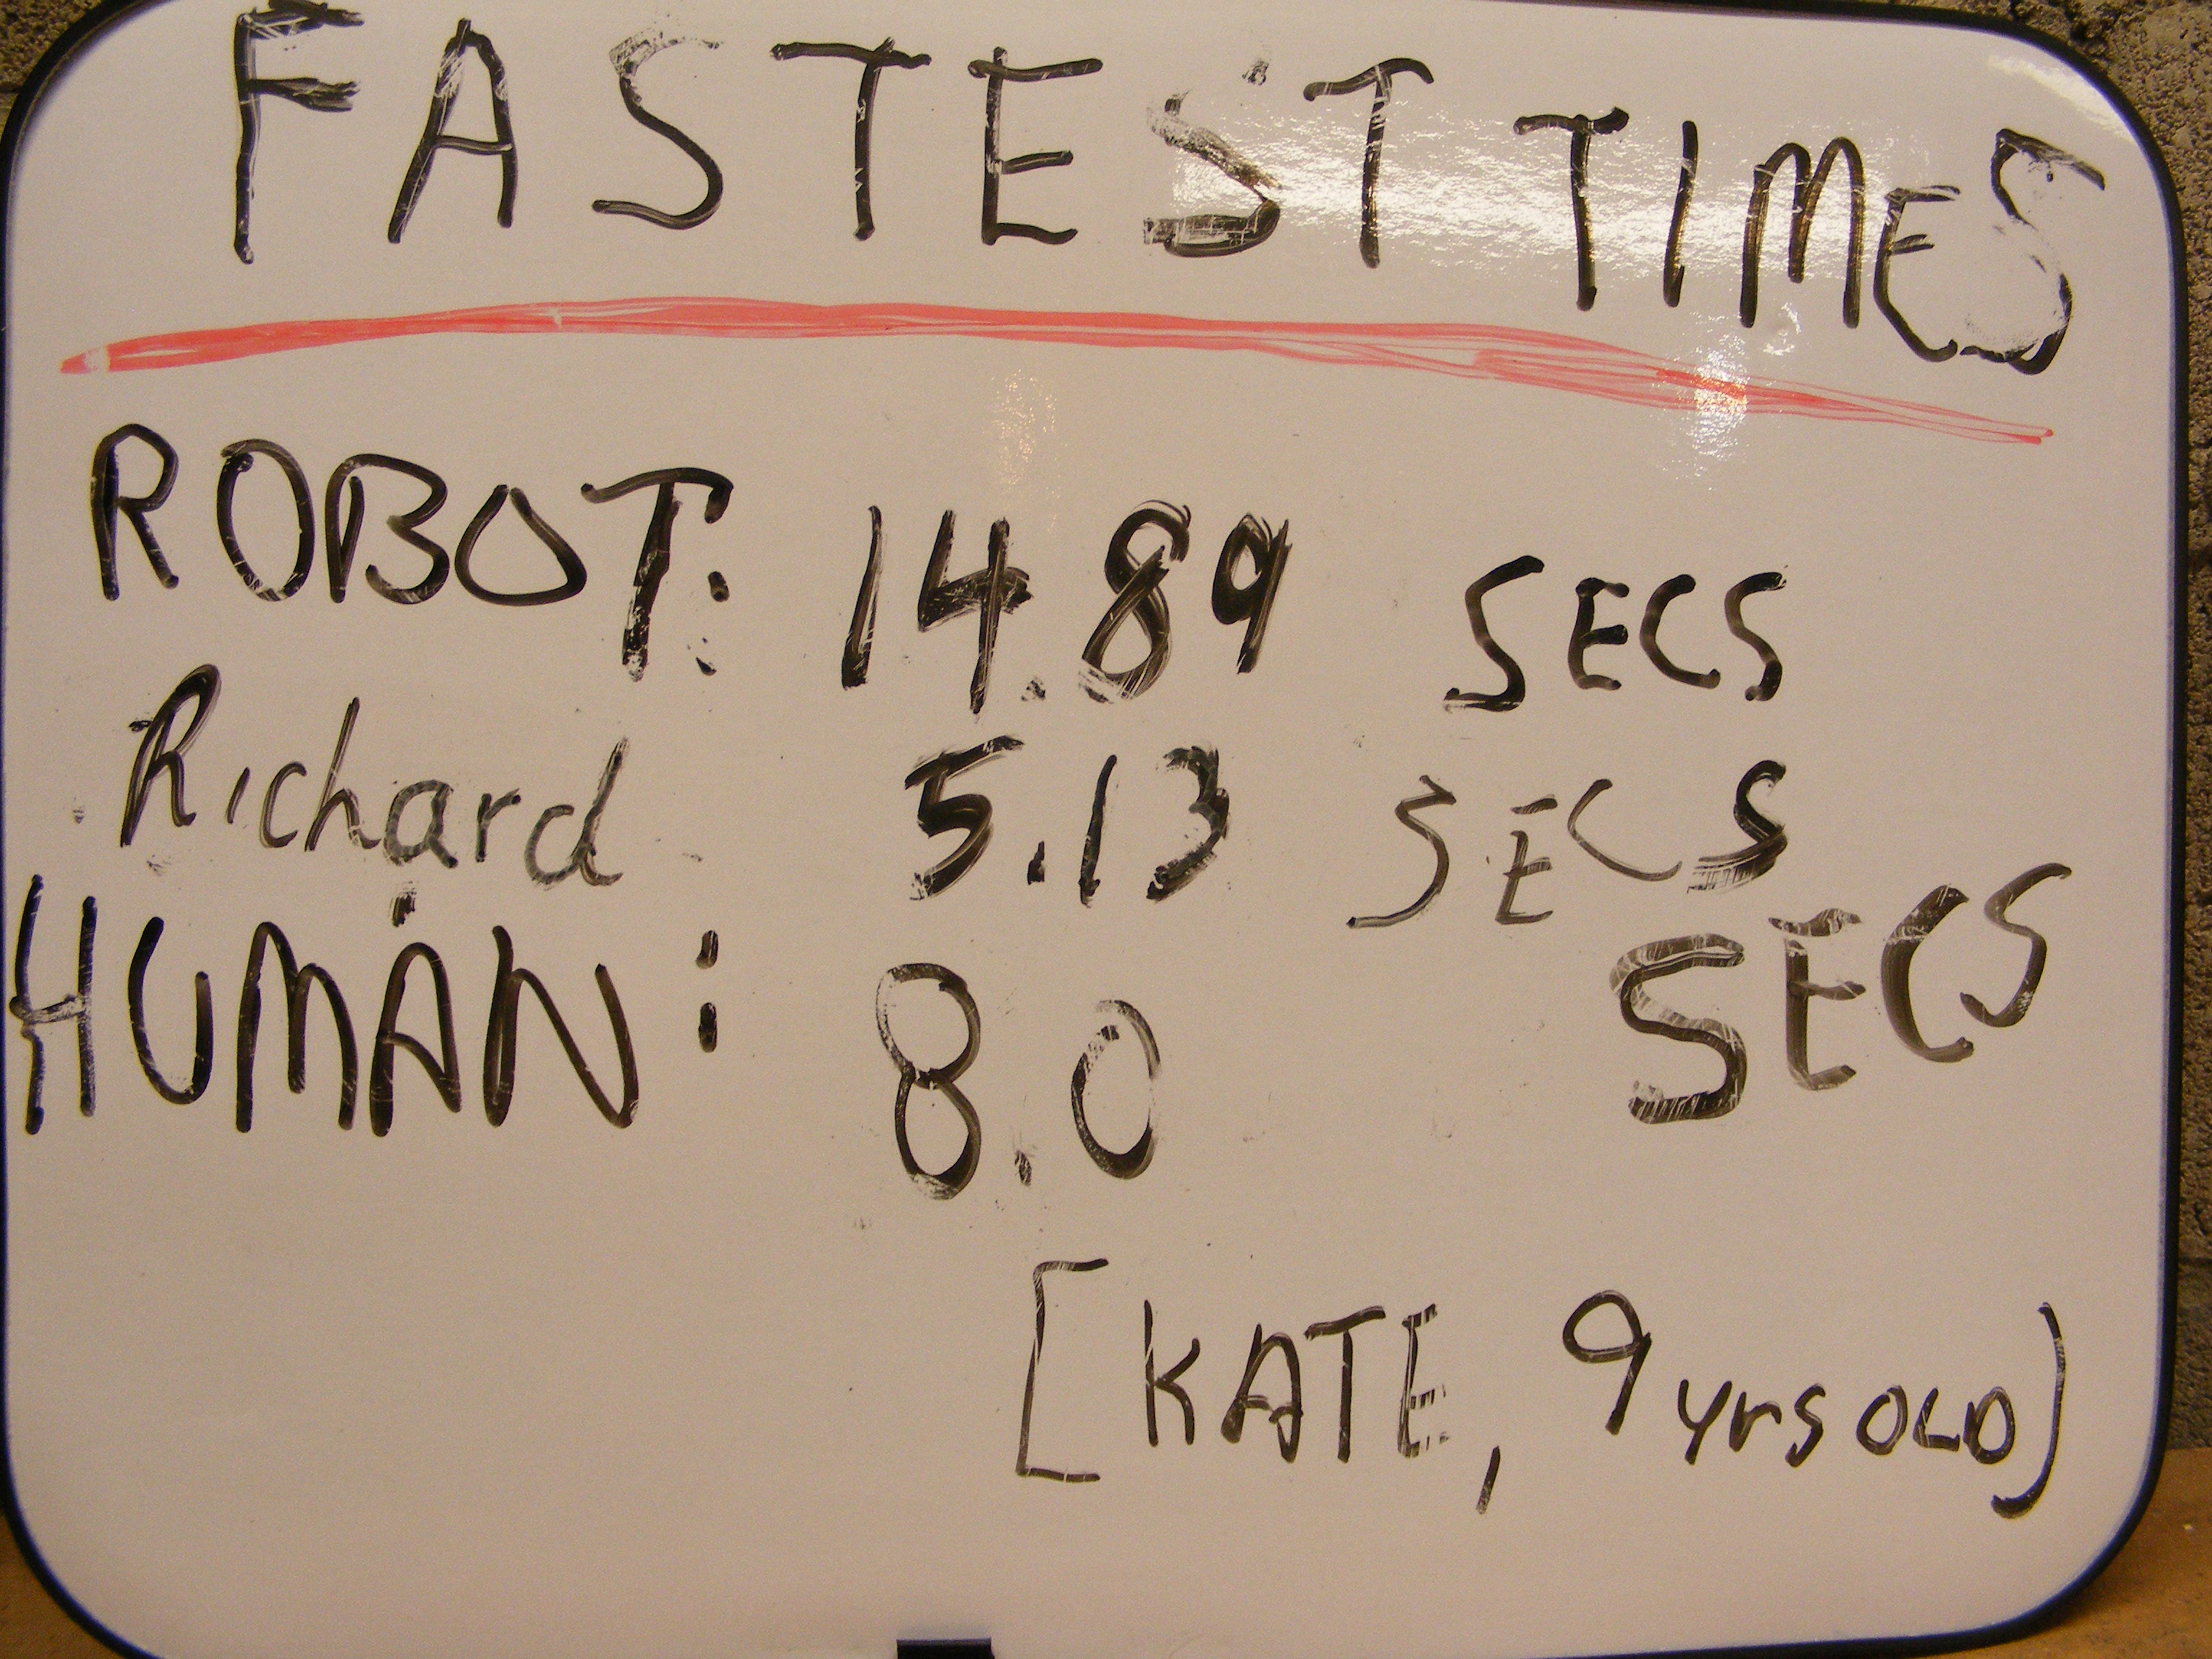 FASTEST TIMES
ROBOT: 14.89 SECS
Richard 5.13 SECS
HUMAN: 8.0 SECS
[KATE, 9 yrs OLD]